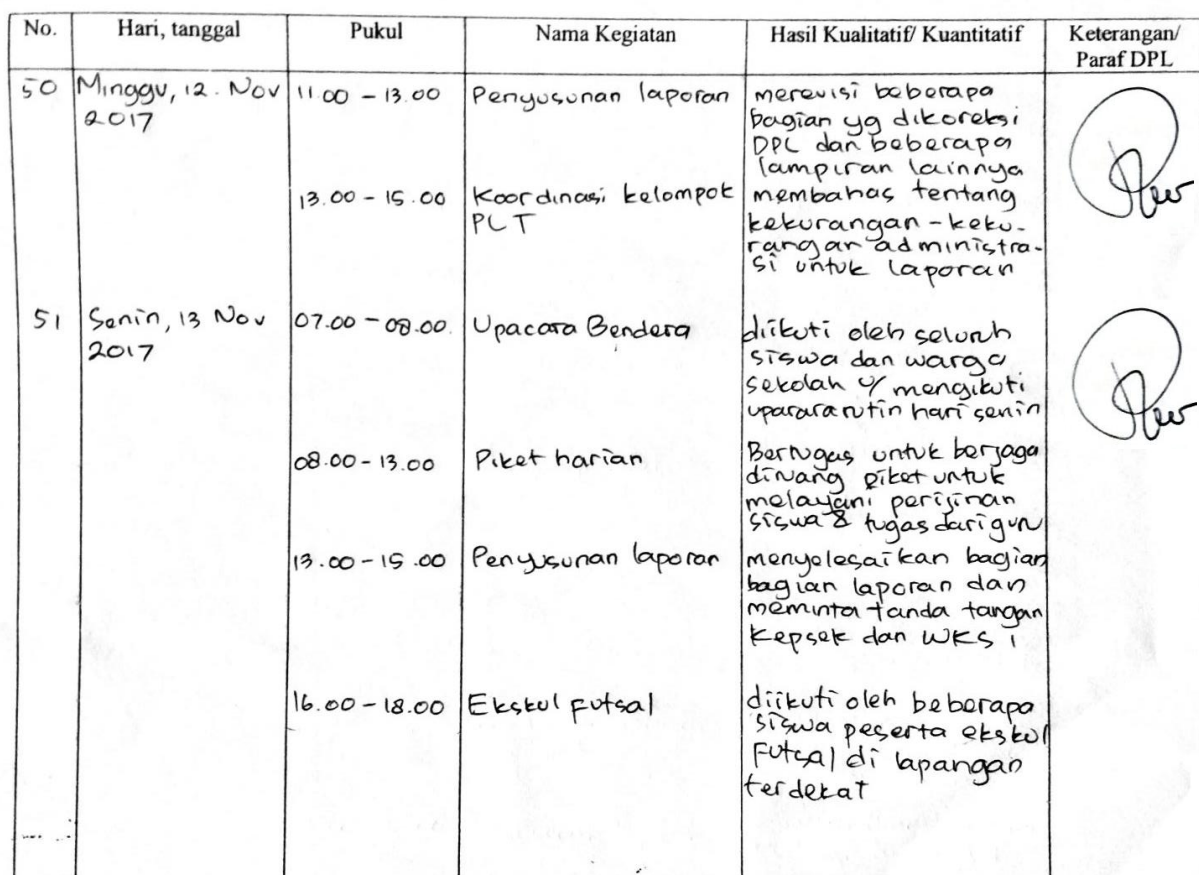 No.
Hari, tanggal
Pukul
Nama Kegiatan
Hasil Kualitatif/ Kuantitatif
Keterangan/
Paraf DPL
50
Minggu, 12. Nov
2017
11.00 - 13.00
Penyusunan laporan
merevisi beberapa
bagian yg dikoreksi
DPL dan beberapa
lampiran lainnya
13.00 - 15.00
Koordinasi kelompok
PLT
membahas tentang
kekurangan - keku-
rangan administra-
si untuk laporan
51
Senin, 13 Nov
2017
07.00 - 08.00.
Upacara Bendera
diikuti oleh seluruh
siswa dan warga
sekolah u/ mengikuti
upacara rutin hari senin
08.00 - 13.00
Piket harian
Bertugas untuk berjaga
diruang piket untuk
melayani perijinan
siswa & tugas dari guru
13.00 - 15.00
Penyusunan laporan
menyelesaikan bagian
bagian laporan dan
meminta tanda tangan
Kepsek dan WKS 1
16.00 - 18.00
Ekskul Futsal
diikuti oleh beberapa
siswa peserta ekskul
Futsal di lapangan
terdekat